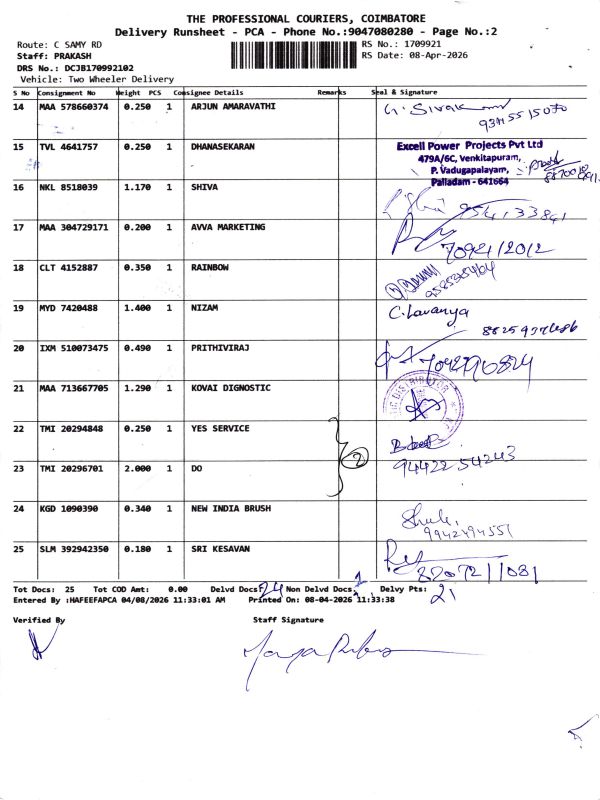 THE PROFESSIONAL COURIERS, COIMBATORE
Delivery Runsheet - PCA - Phone No.:9047080280 - Page No.:2
Route: C SAMY RD RS No.: 1709921
Staff: PRAKASH RS Date: 08-Apr-2026
DRS No.: DCJB170992102
Vehicle: Two Wheeler Delivery
S No Consignment No Weight PCS Consignee Details Remarks Seal & Signature
14 MAA 578660374 0.250 1 ARJUN AMARAVATHI
15 TVL 4641757 0.250 1 DHANASEKARAN
Excell Power Projects Pvt Ltd
479A/6C, Venkitapuram,
P. Vadugapalayam,
Palladam - 641664
16 NKL 8518039 1.170 1 SHIVA
17 MAA 304729171 0.200 1 AVVA MARKETING
18 CLT 4152887 0.350 1 RAINBOW
19 MYD 7420488 1.400 1 NIZAM C. Lavanya
20 IXM 510073475 0.490 1 PRITHIVIRAJ
21 MAA 713667705 1.290 1 KOVAI DIGNOSTIC
22 TMI 20294848 0.250 1 YES SERVICE
2
94422 54243
23 TMI 20296701 2.000 1 DO
24 KGD 1090390 0.340 1 NEW INDIA BRUSH
25 SLM 392942350 0.180 1 SRI KESAVAN
Tot Docs: 25 Tot COD Amt: 0.00 Delvd Docs: 24 Non Delvd Docs: 1 Delvy Pts: 21
Entered By :HAFEEFAPCA 04/08/2026 11:33:01 AM Printed On: 08-04-2026 11:33:38
Verified By Staff Signature